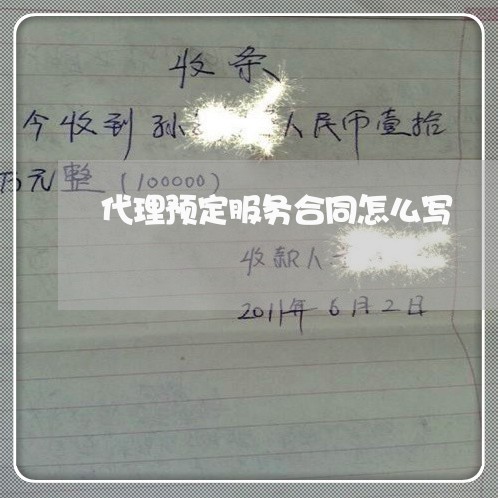 收条
今收到孙 人民币壹拾
万元整(100000)
代理预定服务合同怎么写
收款人
2011年6月2日